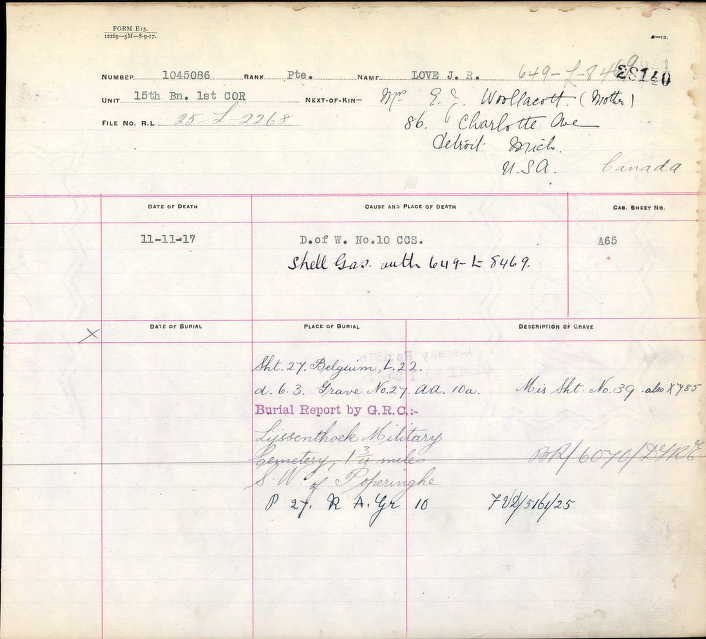 FORM E15.
12269—5M—8-9-17.
NUMBER 1045086 RANK Pte. NAME LOVE J. R. 649-L-8469
28140
UNIT 15th Bn. 1st COR NEXT-OF-KIN— Mrs E. J. Woollacott (Mother)
FILE No. R.L. 25-L-2268
86. Charlotte Ave
Detroit Mich.
U.S.A. Canada
DATE OF DEATH CAUSE AND PLACE OF DEATH CAS. SHEET NO.
11-11-17 D.of W. No.10 CCS. A65
Shell Gas. auth 649-L-8469.
X DATE OF BURIAL PLACE OF BURIAL DESCRIPTION OF GRAVE
Sht. 27. Belgium, L. 22.
d. 6. 3. Grave No. 27. AA. 10a. Mis Sht. No. 39. also X785
Burial Report by G.R.C.:-
Lijssenthoek Military
Cemetery, 1 3/4 miles
S. W. of Poperinghe
P 27. R A. Gr 10